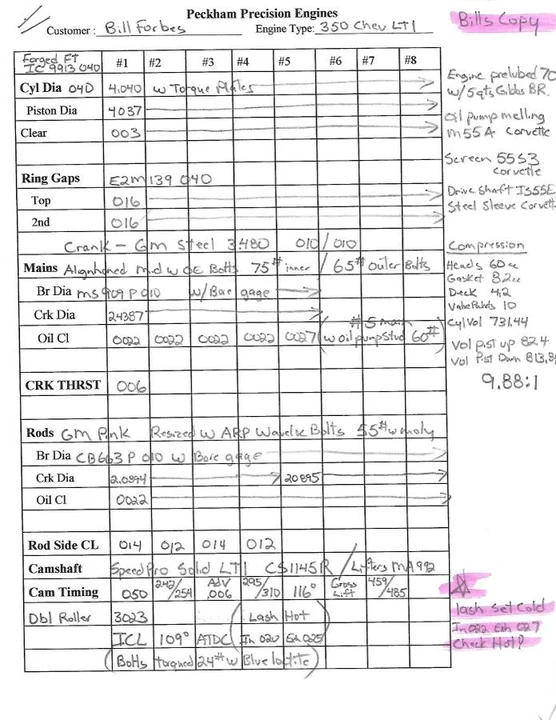 Peckham Precision Engines
Customer: Bill Forbes Engine Type: 350 Chev LT1
Bills Copy
Forged FT
IC 9913 040 #1 #2 #3 #4 #5 #6 #7 #8
Cyl Dia 040 4.040 w Torque Plates
Piston Dia 4037
Clear 003
Ring Gaps E2M 139 040
Top 016
2nd 016
Crank - GM Steel 3.480 010/010
Mains Alignhoned mid w OE Bolts 75# inner / 65# outer Bolts
Br Dia MS 909 P 010 w/Bore gage
Crk Dia 24387
Oil Cl 0022 0022 0022 0022 0027 (#5 main w oil pump stud 60#)
CRK THRST 006
Rods GM Pink Resized w ARP Waveloc Bolts 55# w moly
Br Dia CB663 P 010 w Bore gage
Crk Dia 2.0894 20895
Oil Cl 0022
Rod Side CL 014 012 014 012
Camshaft Speed Pro Solid LT1 CS1145R / Lifters MA992
Cam Timing 050 242/254 Adv .006 295/310 116° Gross Lift 459/485
Dbl Roller 3023 (Lash Hot
ICL 109° ATDC In 020 Ex 025)
(Bolts torqued 24# w Blue loctite)
Engine prelubed 70
w/5qts Gibbs BR.
Oil pump melling
M55A Corvette
Screen 55S3
Corvette
Drive Shaft IS55E
Steel Sleeve Corvett
Compression
Heads 60cc
Gasket 8.2cc
Deck 4.2
Valve Pockets 10
Cyl Vol 731.44
Vol pist up 82.4
Vol Pist Down 813.8
9.88:1
lash set cold
In 022 Exh 027
Check Hot!